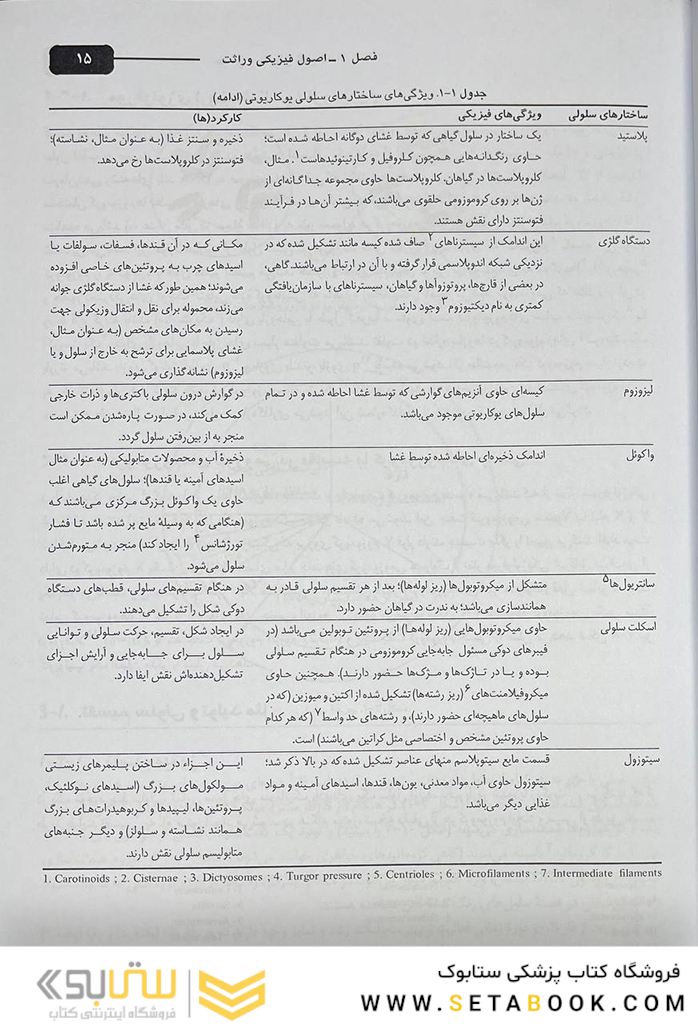 فصل ۱ ــ اصول فیزیکی وراثت
۱۵
جدول ۱-۱. ویژگی‌های ساختارهای سلولی یوکاریوتی (ادامه)
ساختارهای سلولی ویژگی‌های فیزیکی کارکرد(ها)
پلاستید
یک ساختار در سلول گیاهی که توسط غشای دوگانه احاطه شده است؛
حاوی رنگدانه‌هایی همچون کلروفیل و کارتینوئیدهاست۱. مثال،
کلروپلاست‌ها در گیاهان. کلروپلاست‌ها حاوی مجموعه جداگانه‌ای از
ژن‌ها بر روی کروموزومی حلقوی می‌باشند، که بیشتر آن‌ها در فرآیند
فتوسنتز دارای نقش هستند.
ذخیره و سنتز غذا (به عنوان مثال، نشاسته)؛
فتوسنتز در کلروپلاست‌ها رخ می‌دهد.
دستگاه گلژی
این اندامک از سیسترناهای۲ صاف شده کیسه مانند تشکیل شده که در
نزدیکی شبکه اندوپلاسمی قرار گرفته و با آن در ارتباط می‌باشند. گاهی،
در بعضی از قارچ‌ها، پروتوزوآها و گیاهان، سیسترناهای با سازمان‌یافتگی
کمتری به نام دیکتیوزوم۳ وجود دارند.
مکانی که در آن قندها، فسفات، سولفات یا
اسیدهای چرب به پروتئین‌های خاصی افزوده
می‌شوند؛ همین طور که غشا از دستگاه گلژی جوانه
می‌زند، محموله برای نقل و انتقال وزیکولی جهت
رسیدن به مکان‌های مشخص (به عنوان مثال،
غشای پلاسمایی برای ترشح به خارج از سلول و یا
لیزوزوم) نشانه‌گذاری می‌شود.
لیزوزوم
کیسه‌ای حاوی آنزیم‌های گوارشی که توسط غشا احاطه شده و در تمام
سلول‌های یوکاریوتی موجود می‌باشد.
در گوارش درون سلولی باکتری‌ها و ذرات خارجی
کمک می‌کند، در صورت پاره‌شدن ممکن است
منجر به از بین‌رفتن سلول گردد.
واکوئل
اندامک ذخیره‌ای احاطه شده توسط غشا
ذخیرهٔ آب و محصولات متابولیکی (به عنوان مثال
اسیدهای آمینه یا قندها)؛ سلول‌های گیاهی اغلب
حاوی یک واکوئل بزرگ مرکزی می‌باشند که
(هنگامی که به وسیلهٔ مایع پر شده باشد تا فشار
تورژشانس۴ را ایجاد کند) منجر به متورم‌شدن
سلول می‌شود.
سانتریول‌ها۵
متشکل از میکروتوبول‌ها (ریز لوله‌ها)؛ بعد از هر تقسیم سلولی قادر به
همانندسازی می‌باشد؛ به ندرت در گیاهان حضور دارد.
در هنگام تقسیم‌های سلولی، قطب‌های دستگاه
دوکی شکل را تشکیل می‌دهند.
اسکلت سلولی
حاوی میکروتوبول‌هایی (ریز لوله‌ها) از پروتئین توبولین می‌باشد (در
فیبرهای دوکی مسئول جابه‌جایی کروموزومی در هنگام تقسیم سلولی
بوده و یا در تاژک‌ها و مژک‌ها حضور دارند). همچنین حاوی
میکروفیلامنت‌های۶ (ریز رشته‌ها) تشکیل شده از اکتین و میوزین (که در
سلول‌های ماهیچه‌ای حضور دارند)، و رشته‌های حد واسط۷ (که هر کدام
حاوی پروتئین مشخص و اختصاصی مثل کراتین می‌باشند) است.
در ایجاد شکل، تقسیم، حرکت سلولی و توانایی
سلول برای جابه‌جایی و آرایش اجزای
تشکیل‌دهنده‌اش نقش ایفا دارد.
سیتوزول
قسمت مایع سیتوپلاسم منهای عناصر تشکیل شده که در بالا ذکر شد؛
سیتوزول حاوی آب، مواد معدنی، یون‌ها، قندها، اسیدهای آمینه و مواد
غذایی دیگر می‌باشد.
این اجزاء در ساختن پلیمرهای زیستی
مولکول‌های بزرگ (اسیدهای نوکلئیک،
پروتئین‌ها، لیپیدها و کربوهیدرات‌های بزرگ
همانند نشاسته و سلولز) و دیگر جنبه‌های
متابولیسم سلولی نقش دارند.
1. Carotinoids ; 2. Cisternae ; 3. Dictyosomes ; 4. Turgor pressure ; 5. Centrioles ; 6. Microfilaments ; 7. Intermediate filaments
فروشگاه کتاب پزشکی ستابوک
WWW.SETABOOK.COM
ستابوک
فروشگاه اینترنتی کتاب